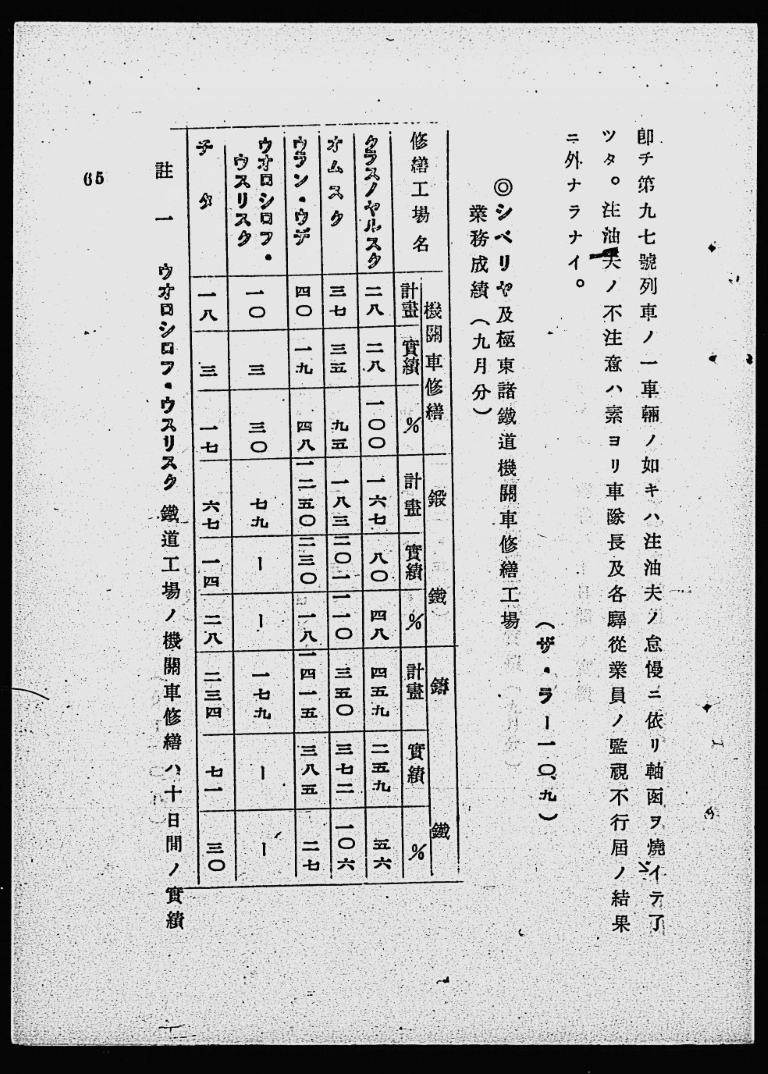 卽チ第九七號列車ノ一車輛ノ如キハ注油夫ノ怠慢ニ依リ軸函ヲ燒イテ了
ツタ。注油夫ノ不注意ハ素ヨリ車隊長及各驛從業員ノ監視不行屆ノ結果
ニ外ナラナイ。
(ザ・ラー一〇、九)
◎シベリヤ及極東諸鐵道機關車修繕工場
業務成績(九月分)
修繕工場名 機關車修繕 鍛鐵 鑄鐵
計畫 實績 % 計畫 實績 % 計畫 實績 %
クラスノヤルスク 二八 二八 一〇〇 一六七 八〇 四八 四五九 二五九 五六
オムスク 三七 三五 九五 一八三 二〇一 一一〇 三五〇 三七二 一〇六
ウラン・ウデ 四〇 一九 四八 一二五〇 二三〇 一八 一四一五 三八五 二七
ウオロシロフ・ウスリスク 一〇 三 三〇 七九 ー ー 一七九 ー ー
チタ 一八 三 一七 六七 一四 二八 二三四 七一 三〇
註 一 ウオロシロフ・ウスリスク鐵道工場ノ機關車修繕ハ十日間ノ實績
65